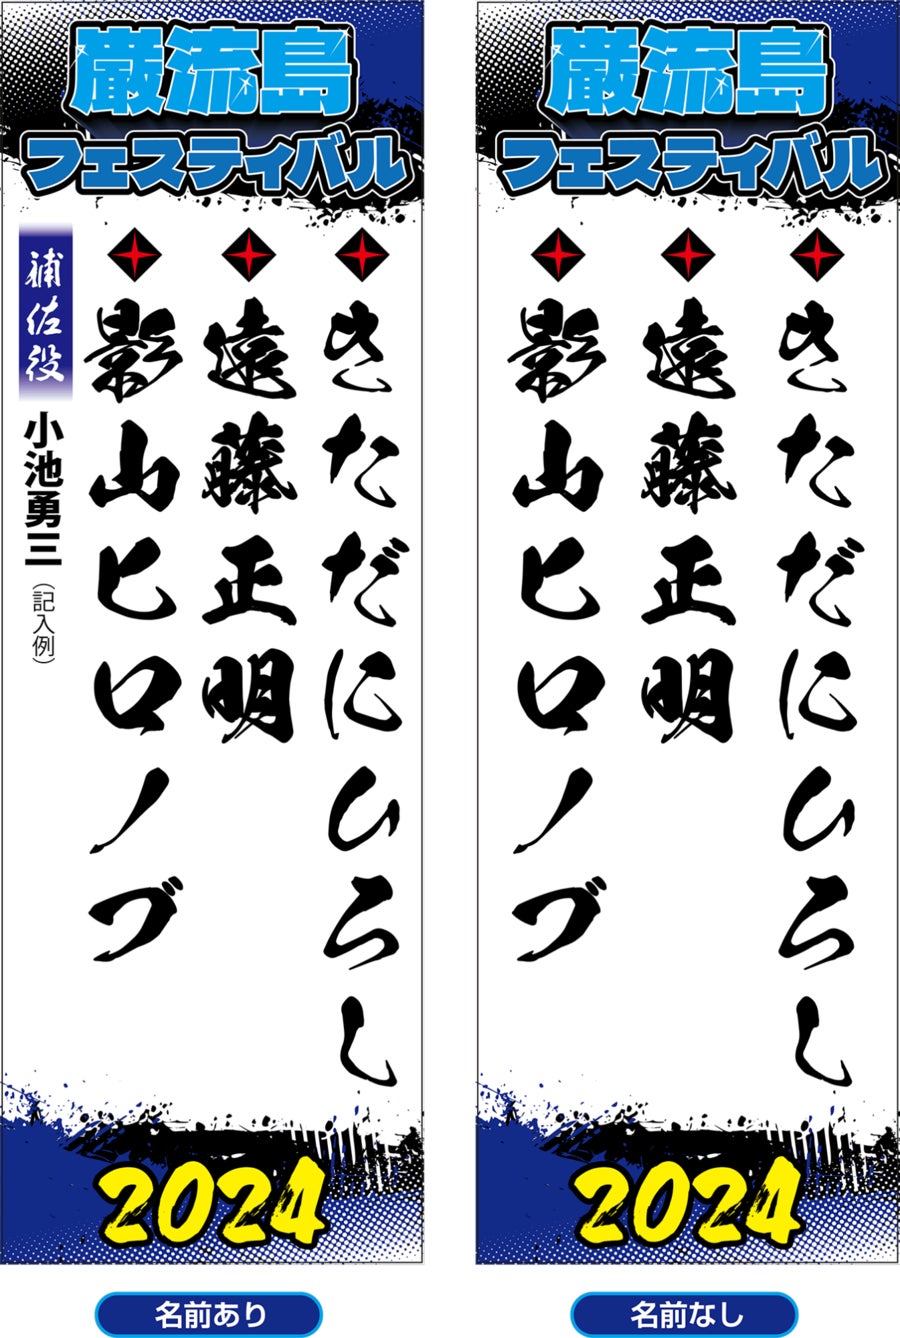 巌流島
フェスティバル
きただにひろし
遠藤正明
影山ヒロノブ
補佐役
小池勇三
（記入例）
2024
名前あり
巌流島
フェスティバル
きただにひろし
遠藤正明
影山ヒロノブ
2024
名前なし